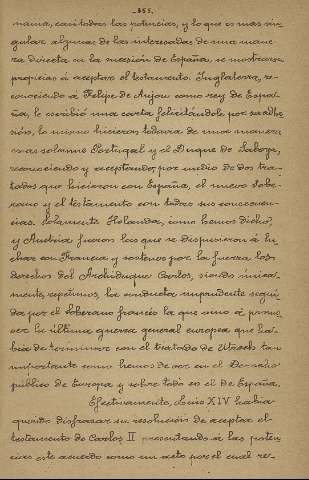 - 355 -
nama, casi todas las potencias, y lo que es mas sin-
gular algunas de las interesadas de una mane-
ra directa en la sucesión de España, se mostraron
propicias á aceptar el testamento. Inglaterra, re-
conociendo á Felipe de Anjou como rey de Espa-
ña, le escribió una carta felicitándole por su adhe-
sión, lo mismo hicieron todavia de una manera
mas solemne Portugal y el Duque de Saboya,
reconociendo y aceptando, por medio de dos tra-
tados que hicieron con España, el nuevo sobe-
rano y el testamento con todas sus consecuen-
cias. Solamente Holanda, como hemos dicho,
y Austria fueron las que se dispusieron á lu-
char con Francia y sostener por la guerra los
derechos del Archiduque Carlos, siendo única-
mente, repetimos, la conducta imprudente segui-
da por el soberano francés la que vino á promo-
ver la última guerra general europea que ha-
bia de terminar con el tratado de Utrech tan
importante como hemos de ver en el Derecho
público de Europa y sobre todo en el de España.
Efectivamente, Luis XIV habia
querido disfrazar su resolución de aceptar el
testamento de Carlos II presentando á las poten-
cias este acuerdo como un acto por el cual re-